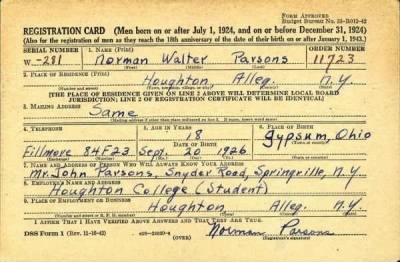 FORM APPROVED
Budget Bureau No. 33-R012-42
REGISTRATION CARD (Men born on or after July 1, 1924, and on or before December 31, 1924)
(Also for the registration of men as they reach the 18th anniversary of the date of their birth on or after January 1, 1943.)
SERIAL NUMBER 1. NAME (Print) ORDER NUMBER
W-281 Norman Walter Parsons 11723
(First) (Middle) (Last)
2. PLACE OF RESIDENCE (Print)
Houghton Alleg. N.Y.
[THE PLACE OF RESIDENCE GIVEN ON LINE 2 ABOVE WILL DETERMINE LOCAL BOARD
JURISDICTION; LINE 2 OF REGISTRATION CERTIFICATE WILL BE IDENTICAL]
3. MAILING ADDRESS
Same
[Mailing address if other than place indicated on line 2. If same, insert word same]
4. TELEPHONE 5. AGE IN YEARS 6. PLACE OF BIRTH
18 Gypsum, Ohio
DATE OF BIRTH
Fillmore 84F23 Sept. 20 1926
7. NAME AND ADDRESS OF PERSON WHO WILL ALWAYS KNOW YOUR ADDRESS
Mr. John Parsons, Snyder Road, Springville, N.Y.
8. EMPLOYER'S NAME AND ADDRESS
Houghton College (Student)
9. PLACE OF EMPLOYMENT OR BUSINESS
Houghton Alleg. N.Y.
I AFFIRM THAT I HAVE VERIFIED ABOVE ANSWERS AND THAT THEY ARE TRUE.
DSS Form 1 (Rev. 11-16-42) (OVER) Norman Parsons
(Registrant's signature)